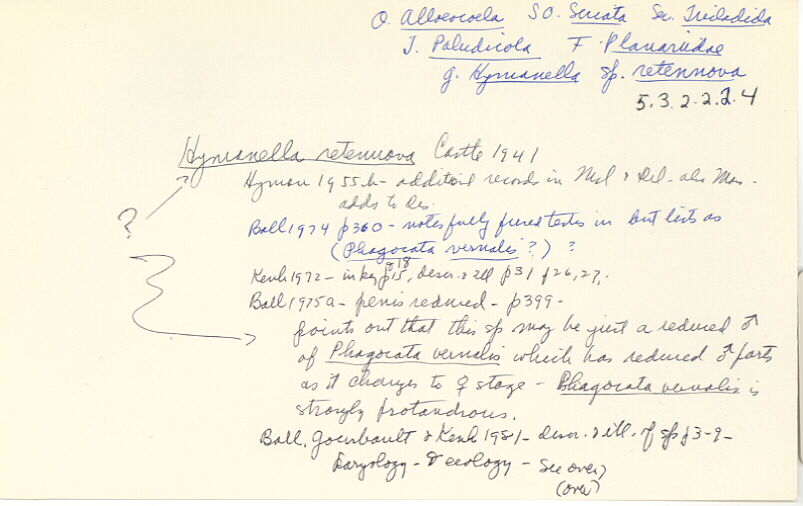 O. Alloeocoela SO. Seriata Sec. Tricladida
T. Paludicola F. Planariidae
g. Hymanella sp. retenuova
5.3.2.2.2.4
Hymanella retenuova Castle 1941
Hyman 1955b - additional records in Md & Del - also Mass.
adds to des.
?
Ball 1974 p360 - notes fully fused testes in but lists as
(Phagocata vernalis?) ?
Kenk 1972 - in key p15, 18, descr. & ill p31 f26,27.
Ball 1975a - penis reduced - p399 -
points out that this sp may be just a reduced ♂
of Phagocata vernalis which has reduced ♂ parts
as it changes to ♀ stage - Phagocata vernalis is
strongly protandrous.
Ball, Gourbault & Kenk 1981 - descr. & ill. of sp p3-9 -
Karyology - & ecology - see over
(over)